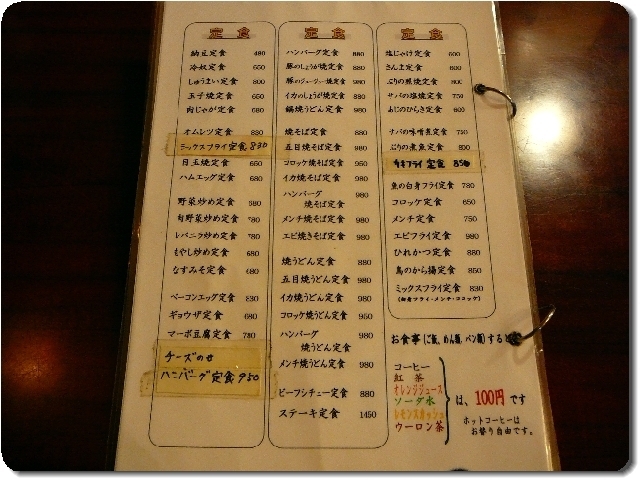 定食
納豆定食 480
冷奴定食 650
しゅうまい定食 800
玉子焼定食 660
肉じゃが定食 680
オムレツ定食 830
ミックスフライ定食 830
目玉焼定食 660
ハムエッグ定食 680
野菜炒め定食 680
肉野菜炒め定食 780
レバニラ炒め定食 780
もやし炒め定食 680
なすみそ定食 480
ベーコンエッグ定食 830
ギョウザ定食 680
マーボ豆腐定食 780
チーズのせ
ハンバーグ定食 950
定食
ハンバーグ定食 880
豚のしょうが焼定食 880
豚のジュージュー焼定食 980
イカのしょうが焼定食 880
鍋焼うどん定食 980
焼そば定食 880
五目焼そば定食 980
コロッケ焼そば定食 950
イカ焼そば定食 980
ハンバーグ
焼そば定食 980
メンチ焼そば定食 980
エビ焼きそば定食 980
焼うどん定食 880
五目焼うどん定食 980
イカ焼うどん定食 980
コロッケ焼うどん定食 950
ハンバーグ
焼うどん定食 980
メンチ焼うどん定食 980
ビーフシチュー定食 880
ステーキ定食 1450
定食
塩じゃけ定食 600
さんま定食 800
ぶりの照焼定食 800
サバの塩焼定食 750
あじのひらき定食 600
サバの味噌煮定食 750
ぶりの煮魚定食 800
カキフライ定食 850
魚の白身フライ定食 780
コロッケ定食 650
メンチ定食 750
エビフライ定食 980
ひれかつ定食 880
鳥のから揚定食 850
ミックスフライ定食 830
(白身フライ・メンチ・コロッケ)
お食事(ご飯、めん類、パン類)すると
コーヒー
紅茶
オレンジジュース
ソーダ水
レモンスカッシュ
ウーロン茶
は、100円です
ホットコーヒーは
お替り自由です。